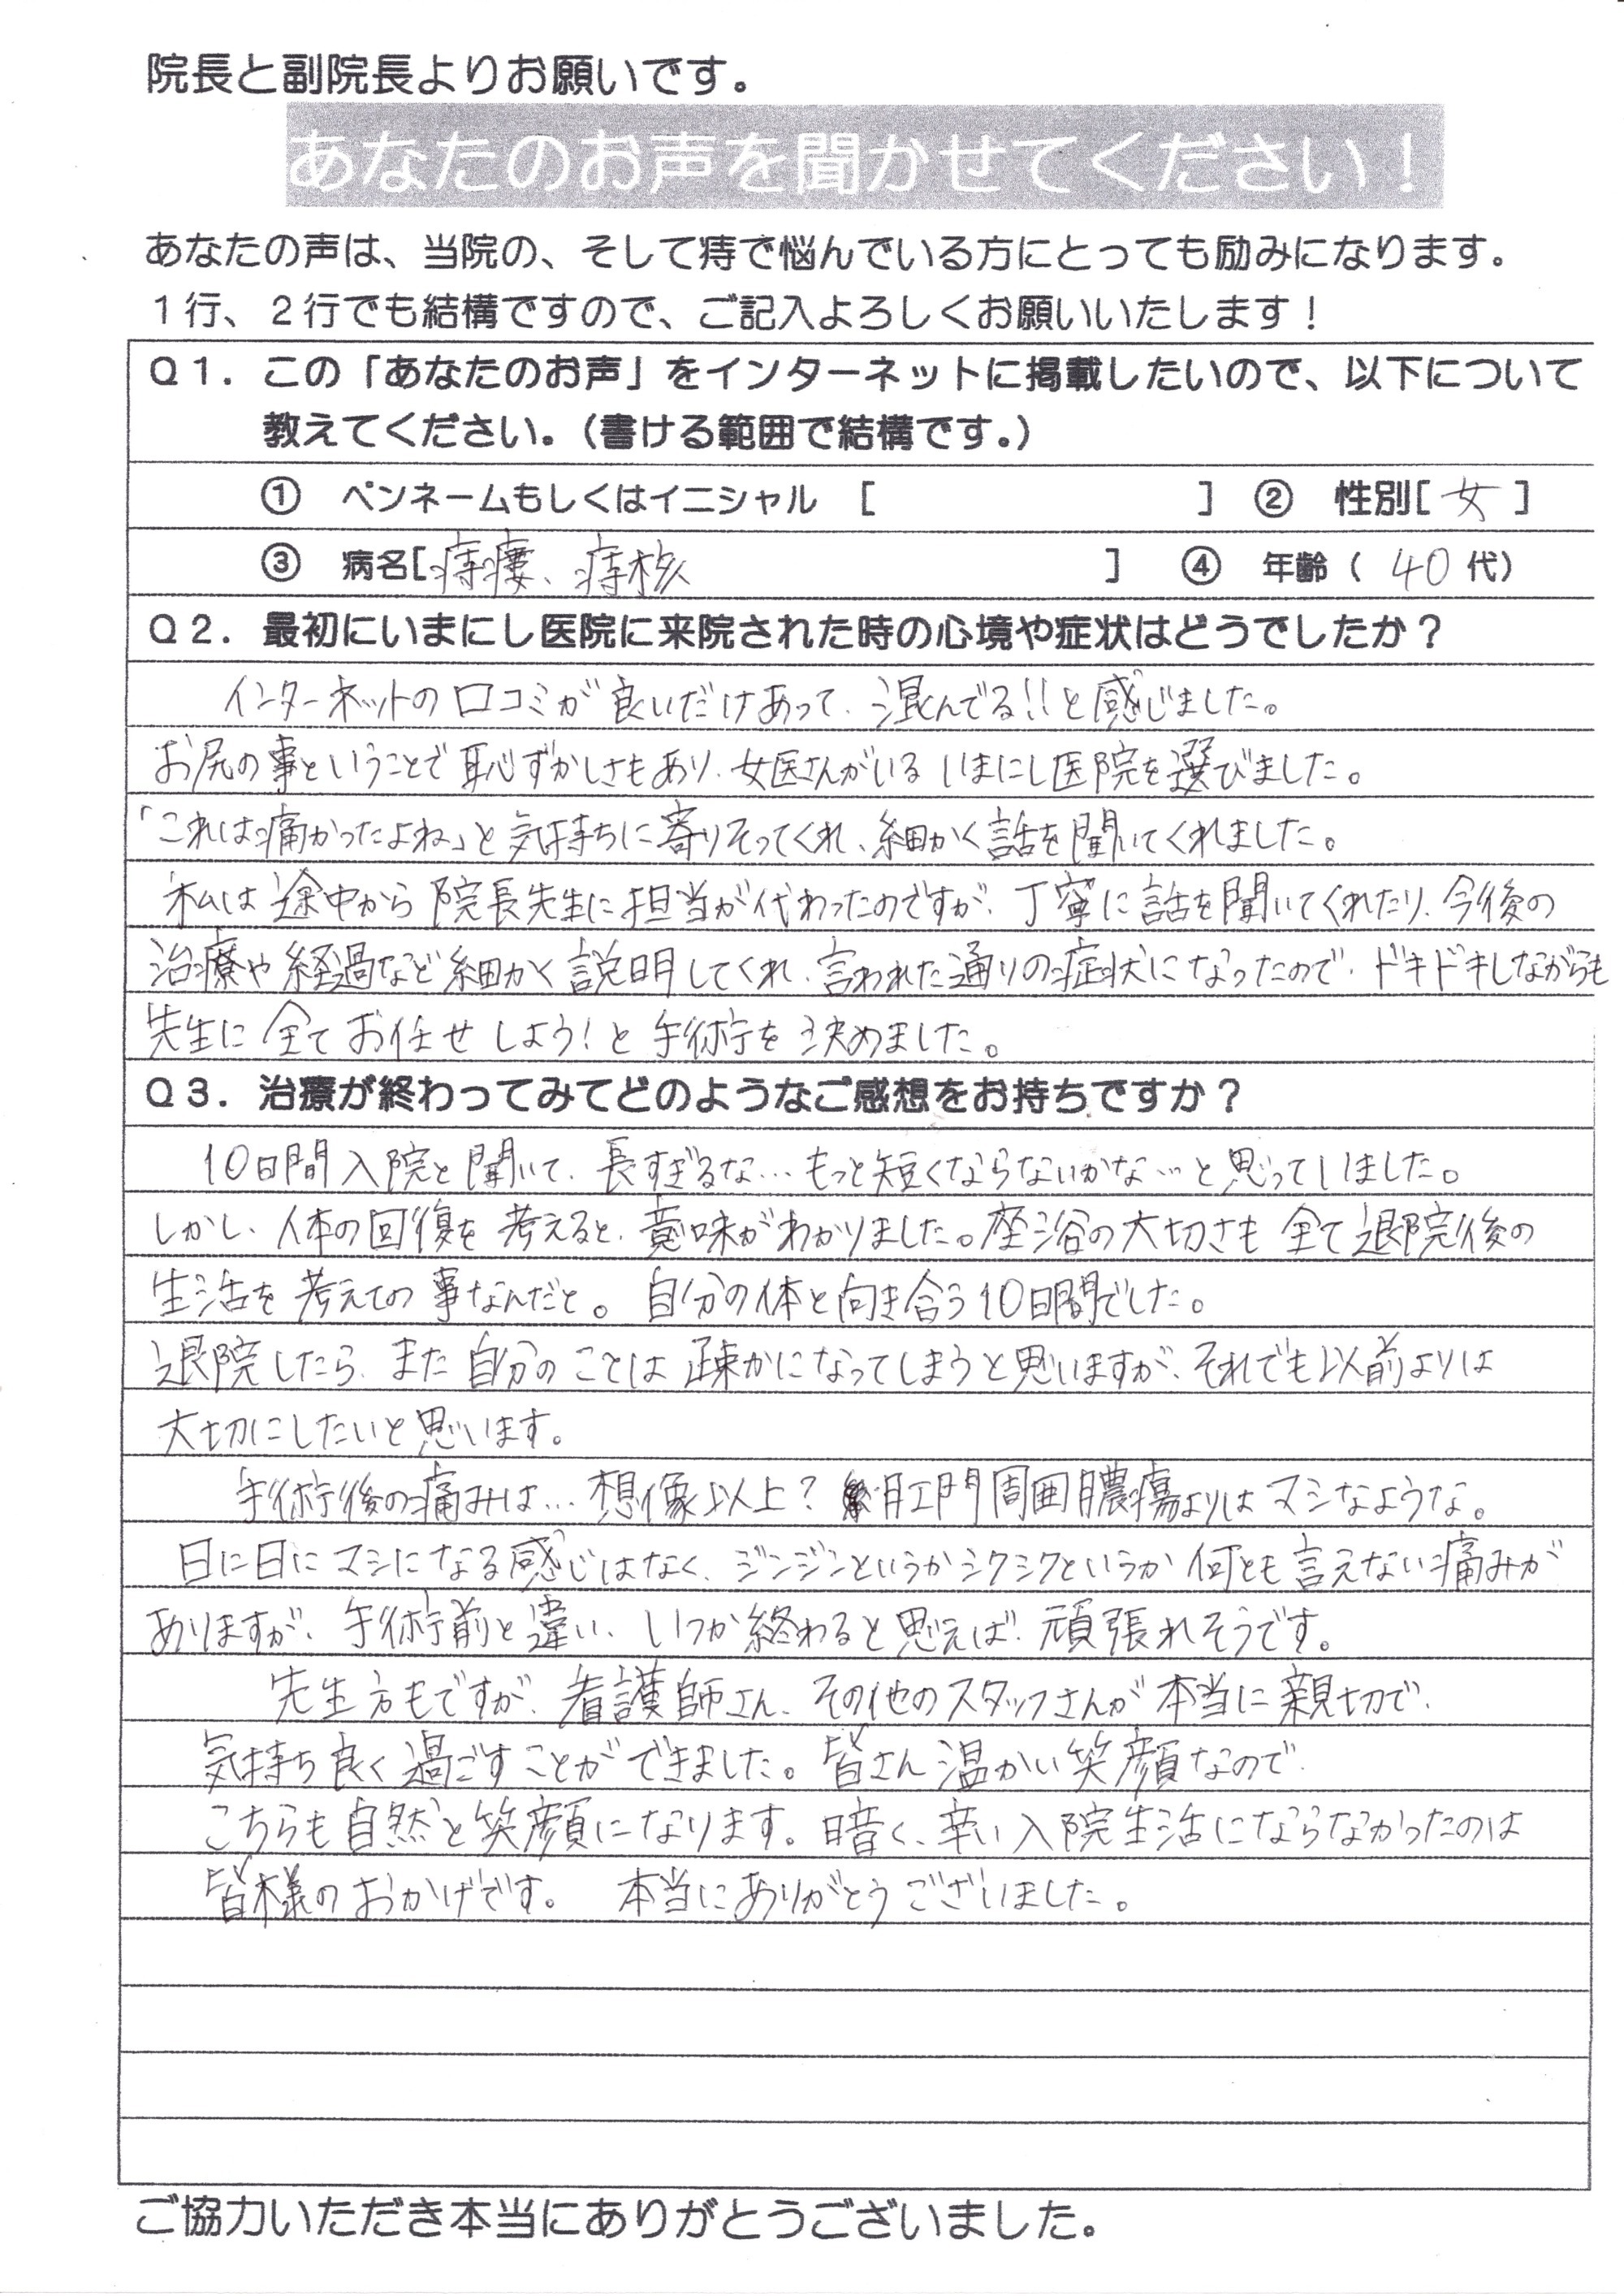 院長と副院長よりお願いです。
あなたのお声を聞かせてください！
あなたの声は、当院の、そして痔で悩んでいる方にとっても励みになります。
１行、２行でも結構ですので、ご記入よろしくお願いいたします！
Ｑ１．この「あなたのお声」をインターネットに掲載したいので、以下について
教えてください。（書ける範囲で結構です。）
① ペンネームもしくはイニシャル [ ] ② 性別[ 女 ]
③ 病名[痔瘻、痔核 ] ④ 年齢（ 40 代）
Ｑ２．最初にいまにし医院に来院された時の心境や症状はどうでしたか？
インターネットの口コミが良いだけあって、混んでる!!と感じました。
お尻の事ということで恥ずかしさもあり、女医さんがいるいまにし医院を選びました。
「これは痛かったよね」と気持ちに寄りそってくれ、細かく話を聞いてくれました。
私は途中から院長先生に担当が代わったのですが、丁寧に話を聞いてくれたり、今後の
治療や経過など細かく説明してくれ、言われた通りの症状になったので、ドキドキしながらも
先生に全てお任せしよう！と手術を決めました。
Ｑ３．治療が終わってみてどのようなご感想をお持ちですか？
10日間入院と聞いて、長すぎるな…もっと短くならないかな…と思ってしました。
しかし、体の回復を考えると、意味がわかりました。座浴の大切さも全て退院後の
生活を考えての事なんだと。自分の体と向き合う10日間でした。
退院したら、また自分のことは疎かになってしまうと思いますが、それでも以前よりは
大切にしたいと思います。
手術後の痛みは…想像以上？肛門周囲膿瘍よりはマシなような。
日に日にマシになる感じはなく、ジンジンというかシクシクというか何とも言えない痛みが
ありますが、手術前と違い、いつか終わると思えば、頑張れそうです。
先生方もですが、看護師さん、その他のスタッフさんが本当に親切で、
気持ち良く過ごすことができました。皆さん温かい笑顔なので、
こちらも自然と笑顔になります。暗く、辛い入院生活にならなかったのは
皆様のおかげです。 本当にありがとうございました。
ご協力いただき本当にありがとうございました。